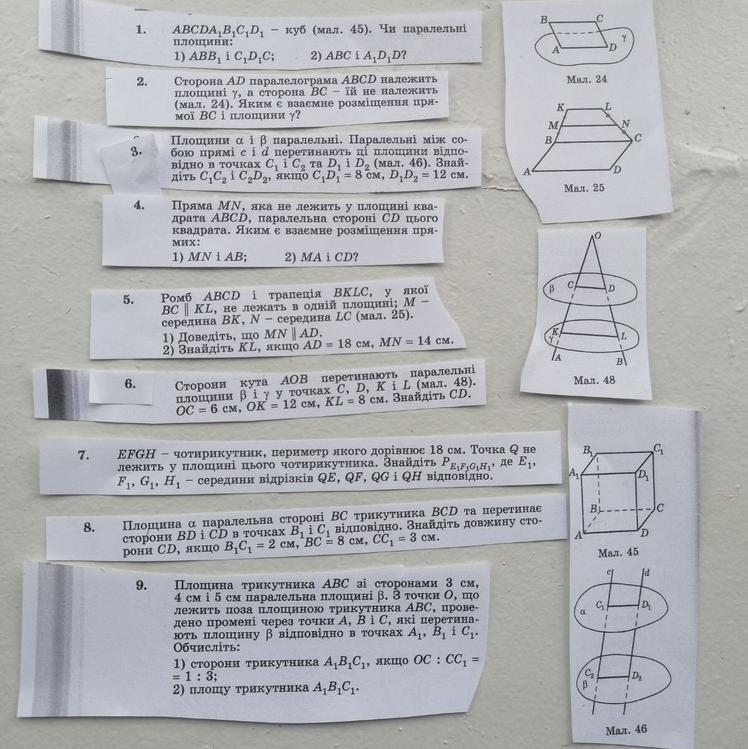 1. ABCDA₁B₁C₁D₁ – куб (мал. 45). Чи паралельні
площини:
1) ABB₁ і C₁D₁C; 2) ABC і A₁D₁D?
2. Сторона AD паралелограма ABCD належить
площині γ, а сторона BC – їй не належить
(мал. 24). Яким є взаємне розміщення пря-
мої BC і площини γ?
3. Площини α і β паралельні. Паралельні між со-
бою прямі c і d перетинають ці площини відпо-
відно в точках C₁ і C₂ та D₁ і D₂ (мал. 46). Знай-
діть C₁C₂ і C₂D₂, якщо C₁D₁ = 8 см, D₁D₂ = 12 см.
4. Пряма MN, яка не лежить у площині ква-
драта ABCD, паралельна стороні CD цього
квадрата. Яким є взаємне розміщення пря-
мих:
1) MN і AB; 2) MA і CD?
5. Ромб ABCD і трапеція BKLC, у якої
BC ∥ KL, не лежать в одній площині; M –
середина BK, N – середина LC (мал. 25).
1) Доведіть, що MN ∥ AD.
2) Знайдіть KL, якщо AD = 18 см, MN = 14 см.
6. Сторони кута AOB перетинають паралельні
площини β і γ у точках C, D, K і L (мал. 48).
OC = 6 см, OK = 12 см, KL = 8 см. Знайдіть CD.
7. EFGH – чотирикутник, периметр якого дорівнює 18 см. Точка Q не
лежить у площині цього чотирикутника. Знайдіть P_E₁F₁G₁H₁, де E₁,
F₁, G₁, H₁ – середини відрізків QE, QF, QG і QH відповідно.
8. Площина α паралельна стороні BC трикутника BCD та перетинає
сторони BD і CD в точках B₁ і C₁ відповідно. Знайдіть довжину сто-
рони CD, якщо B₁C₁ = 2 см, BC = 8 см, CC₁ = 3 см.
9. Площина трикутника ABC зі сторонами 3 см,
4 см і 5 см паралельна площині β. З точки O, що
лежить поза площиною трикутника ABC, прове-
дено промені через точки A, B і C, які перетина-
ють площину β відповідно в точках A₁, B₁ і C₁.
Обчисліть:
1) сторони трикутника A₁B₁C₁, якщо OC : CC₁ =
= 1 : 3;
2) площу трикутника A₁B₁C₁.
B C
γ
A D
Мал. 24
K L
M N
B C
A D
Мал. 25
O
β C D
K
γ L
A B
Мал. 48
B₁ C₁
A₁ D₁
B C
A D
Мал. 45
c d
α C₁ D₁
C₂ D₂
β
Мал. 46